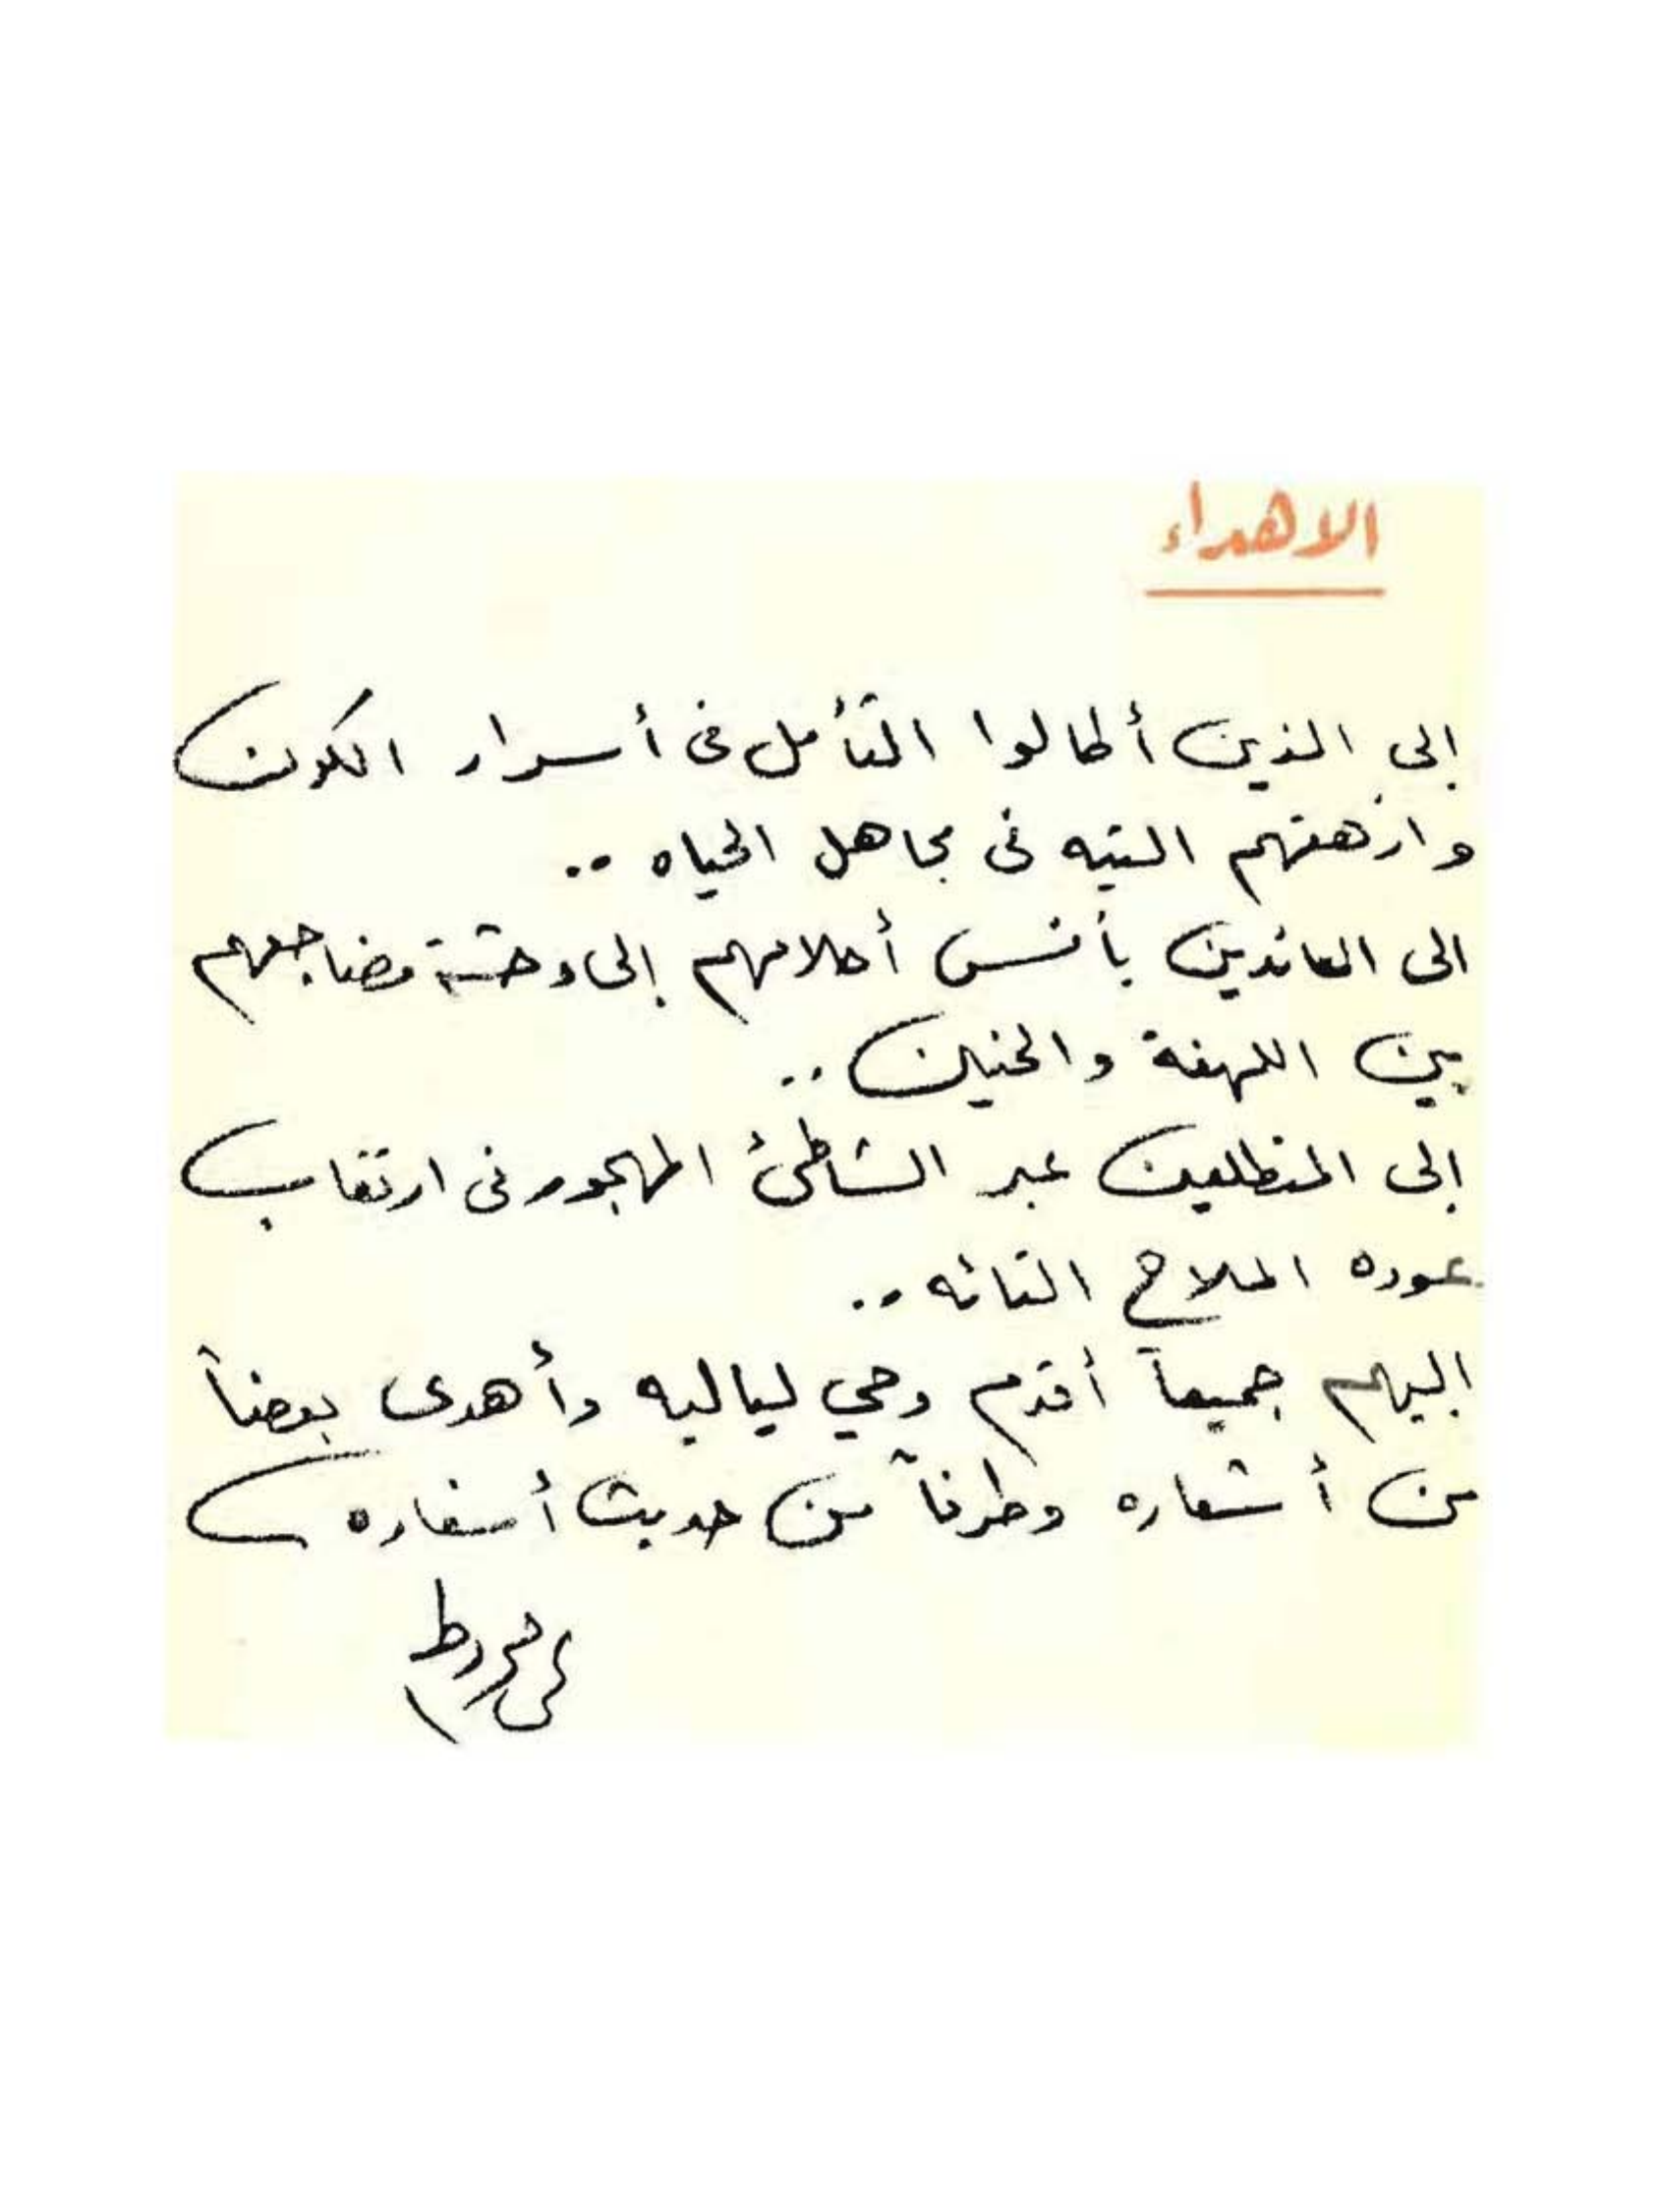 الاهداء
إلى الذين أطالوا التأمل فى أسرار الكون
وازهقتهم التيه فى مجاهل الحياه ..
الى العائدين بأنس أحلامهم إلى وحشة مضاجعهم
بين اللهفة والحنين ..
إلى المتطلعين عبر الشاطئ المهجور فى ارتقاب
عوده الملاح التائه ..
اليهم جميعاً أقدم وحي لياليه وأهدى بعضاً
من أشعاره وطرفاً من حديث أسفاره